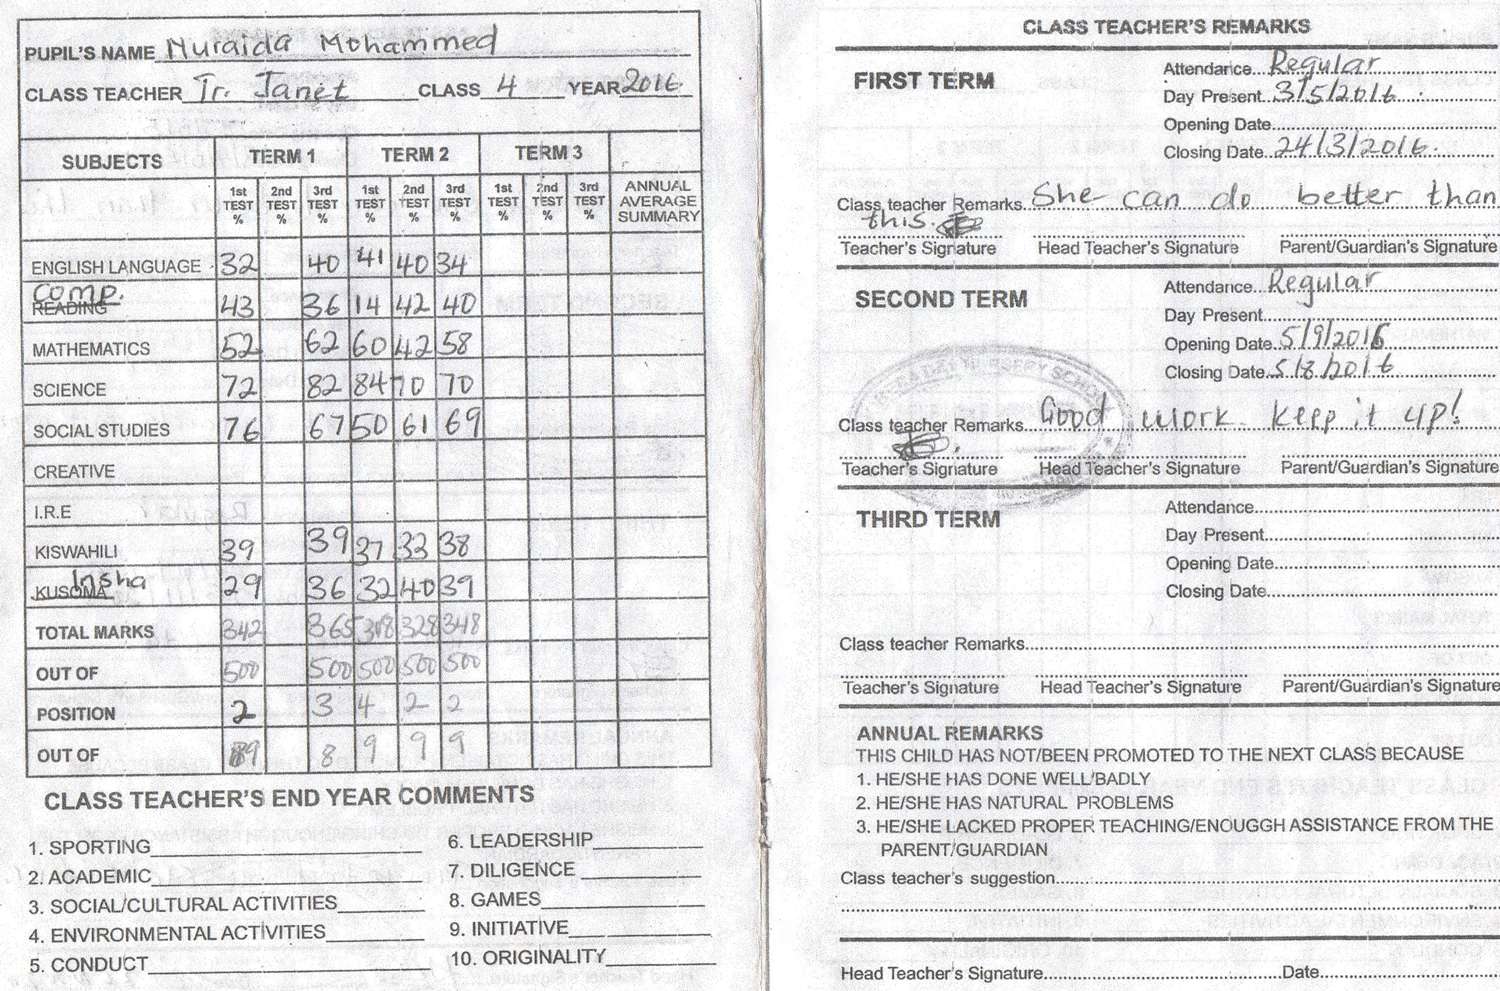 PUPIL'S NAME Nuraida Mohammed
CLASS TEACHER Tr. Janet CLASS 4 YEAR 2016.
SUBJECTS TERM 1 TERM 2 TERM 3
1st TEST % 2nd TEST % 3rd TEST % 1st TEST % 2nd TEST % 3rd TEST % 1st TEST % 2nd TEST % 3rd TEST % ANNUAL AVERAGE SUMMARY
ENGLISH LANGUAGE 32 40 41 40 34
Comp.
READING 43 36 14 42 40
MATHEMATICS 52 62 60 42 58
SCIENCE 72 82 84 70 70
SOCIAL STUDIES 76 67 50 61 69
CREATIVE
I.R.E
KISWAHILI 39 39 37 33 38
Insha
KUSOMA 29 36 32 40 39
TOTAL MARKS 342 365 318 328 348
OUT OF 500 500 500 500 500
POSITION 2 3 4 2 2
OUT OF 9 8 9 9 9
CLASS TEACHER'S END YEAR COMMENTS
1. SPORTING
2. ACADEMIC
3. SOCIAL/CULTURAL ACTIVITIES
4. ENVIRONMENTAL ACTIVITIES
5. CONDUCT
6. LEADERSHIP
7. DILIGENCE
8. GAMES
9. INITIATIVE
10. ORIGINALITY
CLASS TEACHER'S REMARKS
FIRST TERM
Attendance Regular
Day Present 3/5/2016
Opening Date
Closing Date 24/3/2016.
Class teacher Remarks She can do better than
this.
Teacher's Signature Head Teacher's Signature Parent/Guardian's Signature
SECOND TERM
Attendance Regular
Day Present
Opening Date 5/9/2016
Closing Date 5/8/2016
Class teacher Remarks Good work. Keep it up!
Teacher's Signature Head Teacher's Signature Parent/Guardian's Signature
THIRD TERM
Attendance
Day Present
Opening Date
Closing Date
Class teacher Remarks
Teacher's Signature Head Teacher's Signature Parent/Guardian's Signature
ANNUAL REMARKS
THIS CHILD HAS NOT/BEEN PROMOTED TO THE NEXT CLASS BECAUSE
1. HE/SHE HAS DONE WELL/BADLY
2. HE/SHE HAS NATURAL PROBLEMS
3. HE/SHE LACKED PROPER TEACHING/ENOUGGH ASSISTANCE FROM THE
PARENT/GUARDIAN
Class teacher's suggestion
Head Teacher's Signature Date